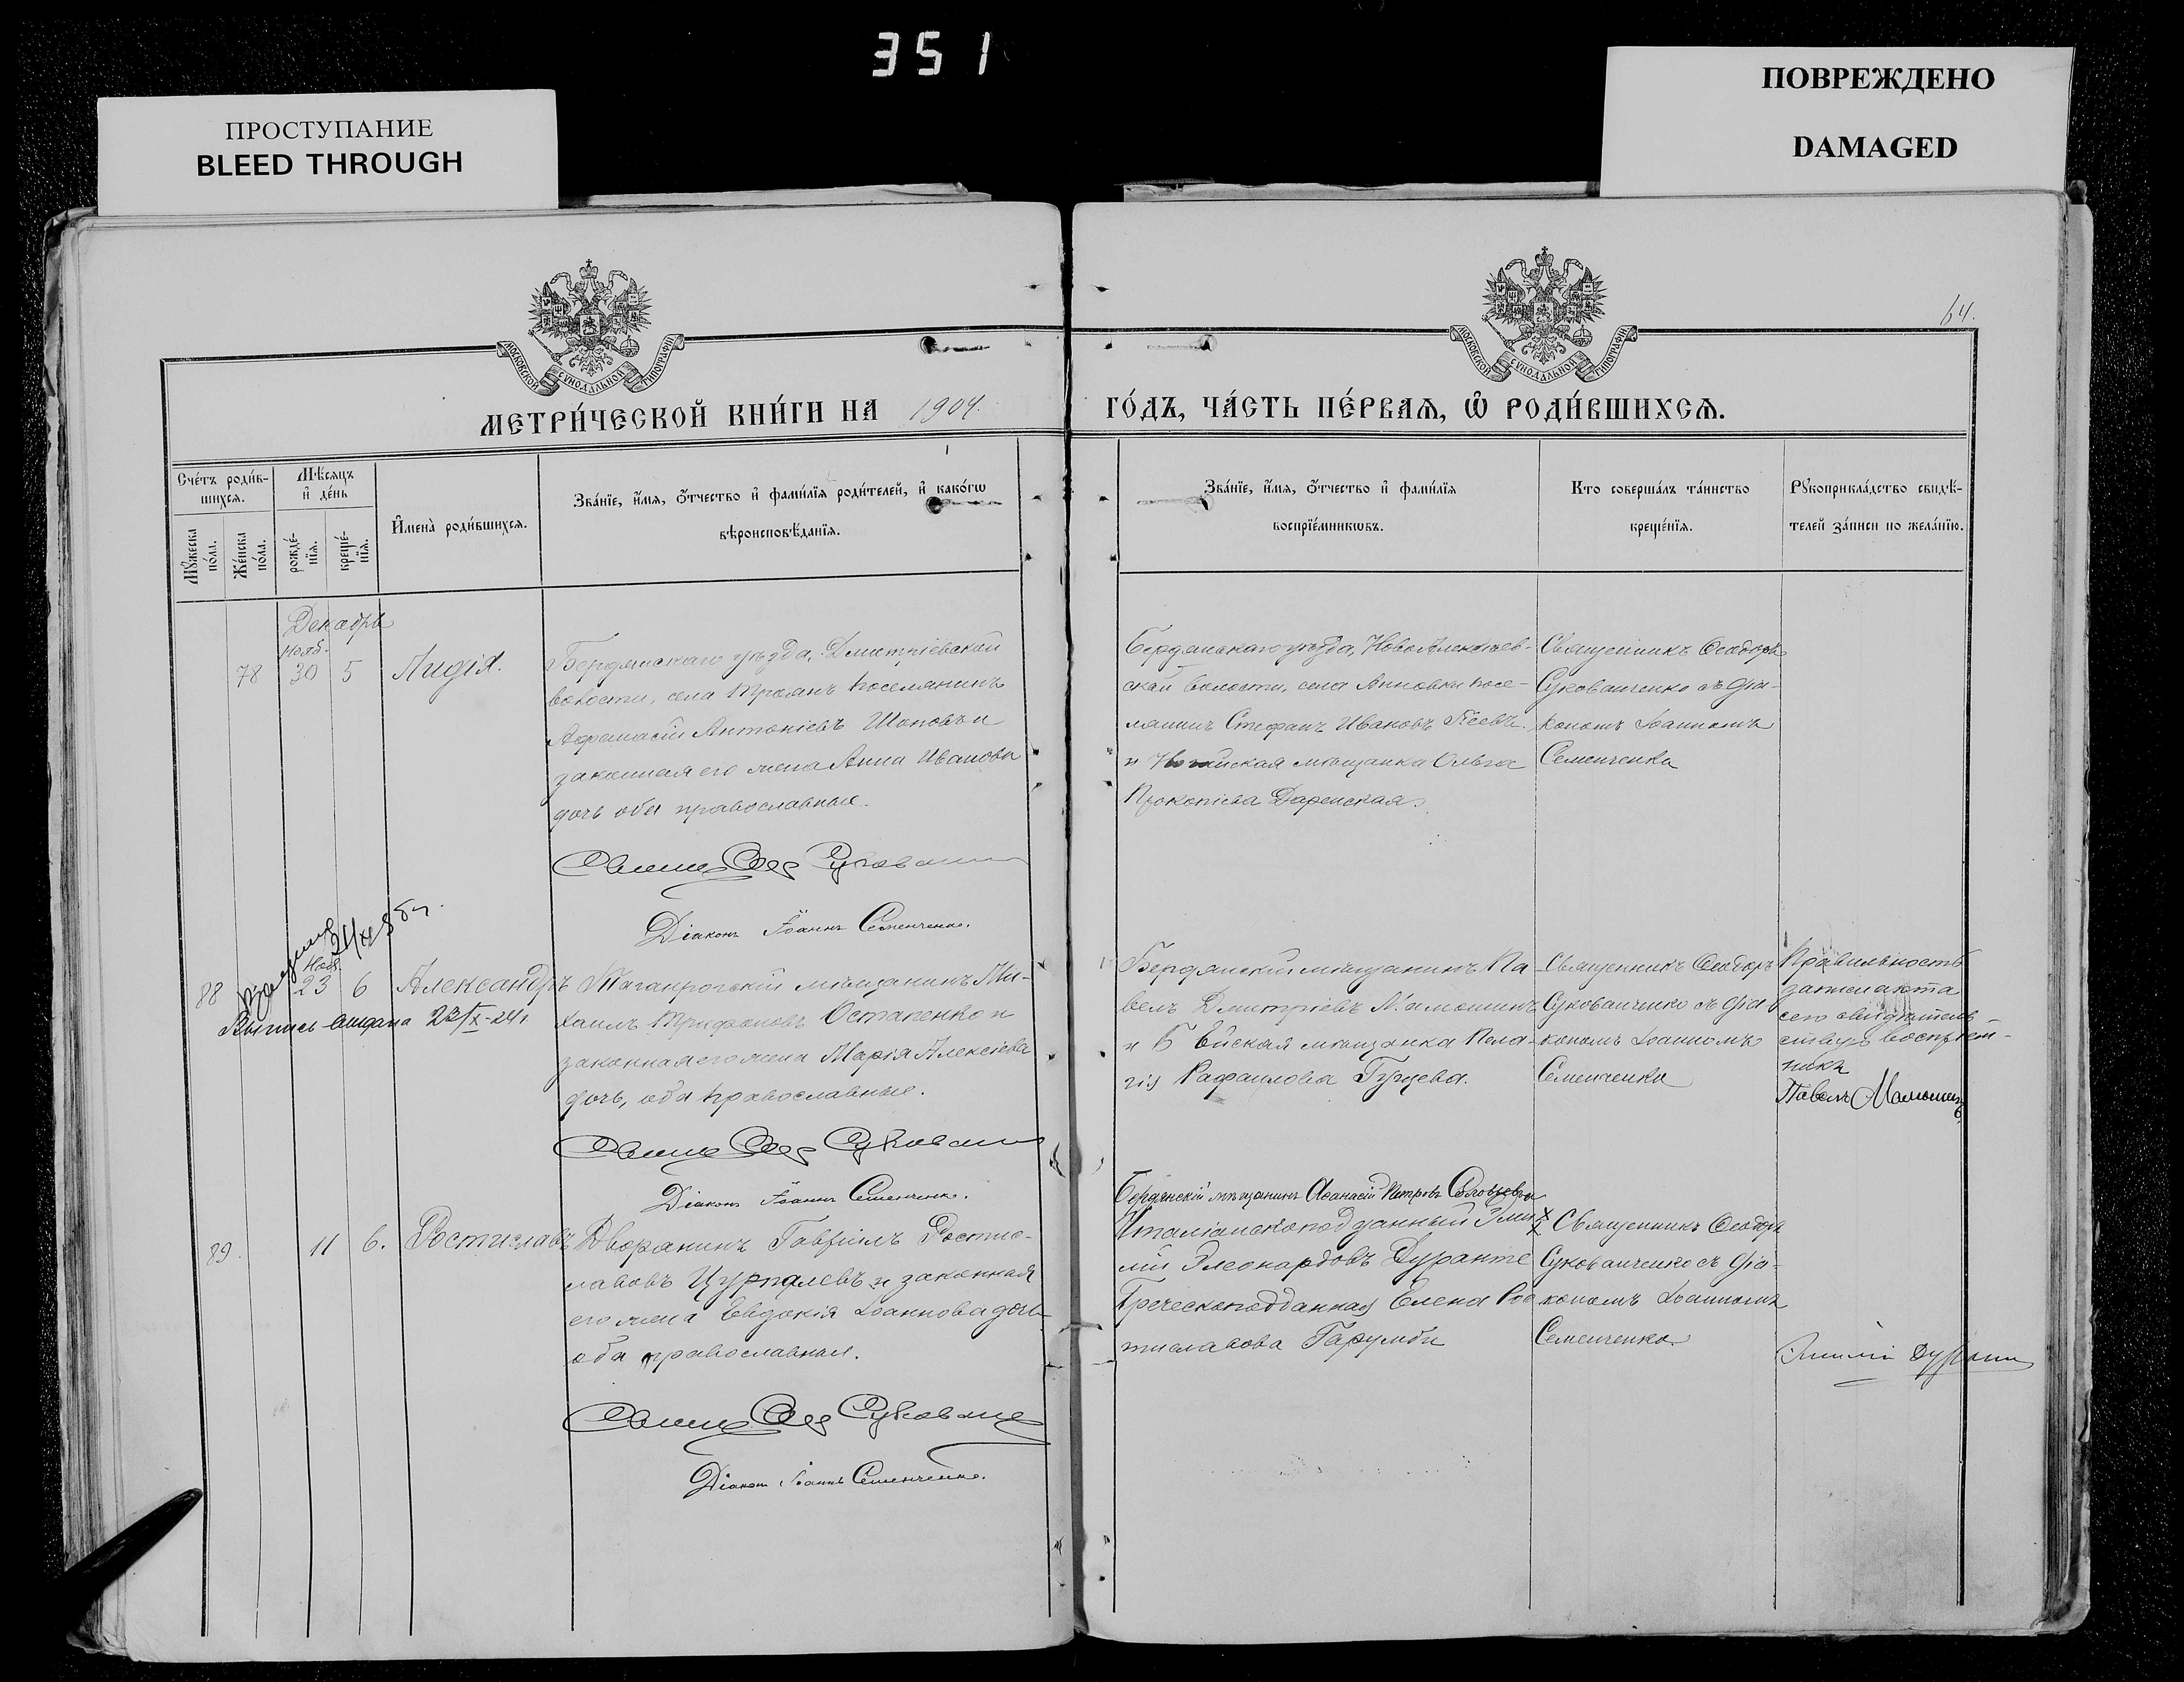 351
ПРОСТУПАНИЕ
BLEED THROUGH
ПОВРЕЖДЕНО
DAMAGED
64.
МОСКОВСКОЙ СѴНОДАЛЬНОЙ ТИПОГРАФІИ
МОСКОВСКОЙ СѴНОДАЛЬНОЙ ТИПОГРАФІИ
МЕТРИ́ЧЕСКОЙ КНИ́ГИ НА 1904.
ГО́ДЪ, ЧА́СТЬ ПЕ́РВАѦ, Ѽ РОДИ́ВШИХСѦ.
Сче́тъ роди́в-
шихсѧ.
Мꙋ́жеска по́ла.
Же́нска по́ла.
Мѣ́сѧцъ
и҆ де́нь
рожде́-
нїѧ.
креще́-
нїѧ.
И҆мена̀ роди́вшихсѧ.
Зва́нїе, и҆́мѧ, ѻ҆́тчество и҆ фами́лїѧ роди́телей, и҆ како́гѡ
вѣроисповѣ́данїѧ.
Зва́нїе, и҆́мѧ, ѻ҆́тчество и҆ фами́лїѧ
воспрїе́мникѡвъ.
Кто соверша́лъ та́инство
креще́нїѧ.
Рꙋкоприкла́дство свидѣ́-
телей за́писи по жела́нїю.
Декабрь
Нояб.
78 30 5 Лидія.
Бердянскаго уѣзда, Дмитріевской
волости, села Троянъ поселянинъ
Афанасій Антоніевъ Шоповъ и
законная его жена Анна Иванова
дочь оба православные.
Діаконъ Іоаннъ Семенченко.
Бердянскаго уѣзда, НовоАлексѣев-
ской волости, села Анновки посе-
лянинъ Стефанъ Ивановъ
и Ногайская мѣщанка Ольга
Прокопіева Даренская.
Священникъ Ѳеодоръ
Сукованченко съ діа-
кономъ Іоанномъ
Семенченко
Выпись выдана 23/X-24 г.
Нояб.
88 23 6 Александръ
Таганрогскій мѣщанинъ Ми-
хаилъ Трифоновъ Остапенко и
законная его жена Марія Алексіева
дочь, оба православные.
Діаконъ Іоаннъ Семенченко.
Бердянскій мѣщанинъ Па-
велъ Дмитріевъ Мамошинъ
и Ейская мѣщанка Пела-
гія Рафаилова Гунцева.
Священникъ Ѳеодоръ
Сукованченко съ діа-
кономъ Іоанномъ
Семенченко
Правильность
записи акта
сего свидѣтель-
ствую воспріем-
никъ
Павелъ Мамошинъ
89. 11 6. Ростиславъ
Дворянинъ Гавріилъ Ростис-
лавовъ Цурпалевъ и законная
его жена Евдокія Іоаннова дочь
оба православные.
Діаконъ Іоаннъ Семенченко.
Бердянскій мѣщанинъ Аѳанасій Петровъ Соловьевъ
Италіанскоподданный Эми-
лій Элеонардовъ Дуранте
Греческоподданная Елена Рос
тиславова
Священникъ Ѳеодоръ
Сукованченко съ діа-
кономъ Іоанномъ
Семенченко.